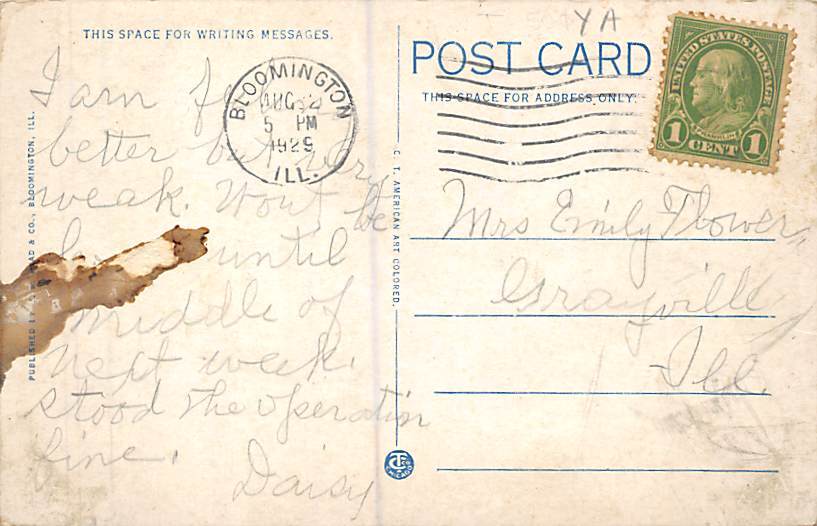 THIS SPACE FOR WRITING MESSAGES.
I am
better but very
weak. Wont be
until
middle of
next week.
stood the operation
fine.
Daisy
BLOOMINGTON
AUG
5 PM
1929
ILL.
PUBLISHED BY & CO., BLOOMINGTON, ILL.
C. T. AMERICAN ART COLORED.
YA
POST CARD
THIS SPACE FOR ADDRESS ONLY.
UNITED STATES POSTAGE
FRANKLIN
1 CENT 1
Mrs Emily Flower,
Grayville
Ill.
CHICAGO